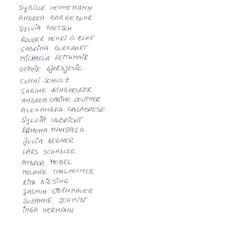 SYBILLE HENNEMANN
ANDREA BARGEBUHR
SYLVIA PAETSCH
SABRINA BURKHART
MICHAELA REITHMAIR
SOPHIE DJORDJEVIC
CONNI SCHULZ
SABINE WINDHEUSER
ANDREA SABINE LEUTNER
ALEXANDRA CALABRESE
SYLVIA ULBRICHT
RAMONA MANSFELD
JULIA DEGNER
LARS SCHÄDLER
ANDREA HEBEL
MELANIE THALHEIMER
RITA DIESING
JASMIN STEINHAUER
SUZANNE SCHMIDT
INGA HERMANN